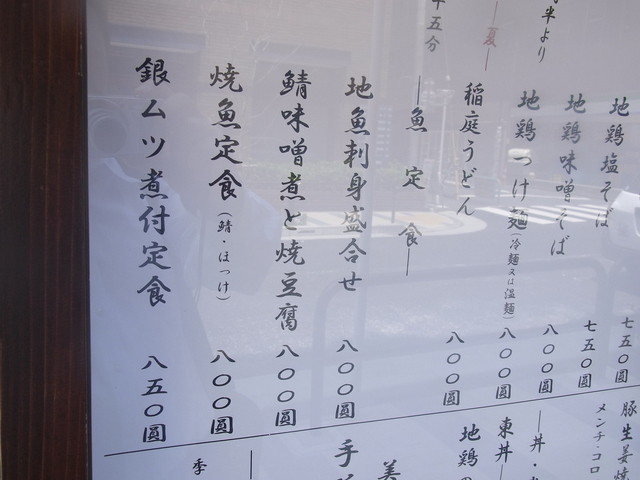 七五〇圓
地鶏塩そば 七五〇圓
半より
地鶏味噌そば 八〇〇圓
地鶏つけ麺(冷麺又は温麺) 八〇〇圓
―夏―
稲庭うどん 八〇〇圓
十五分
―魚定食―
地魚刺身盛合せ 八〇〇圓
鯖味噌煮と焼豆腐 八〇〇圓
焼魚定食(鯖・ほっけ) 八〇〇圓
銀ムツ煮付定食 八五〇圓
豚生姜焼
メンチ・コロ
―丼・
東丼
地鶏の
美
手
季